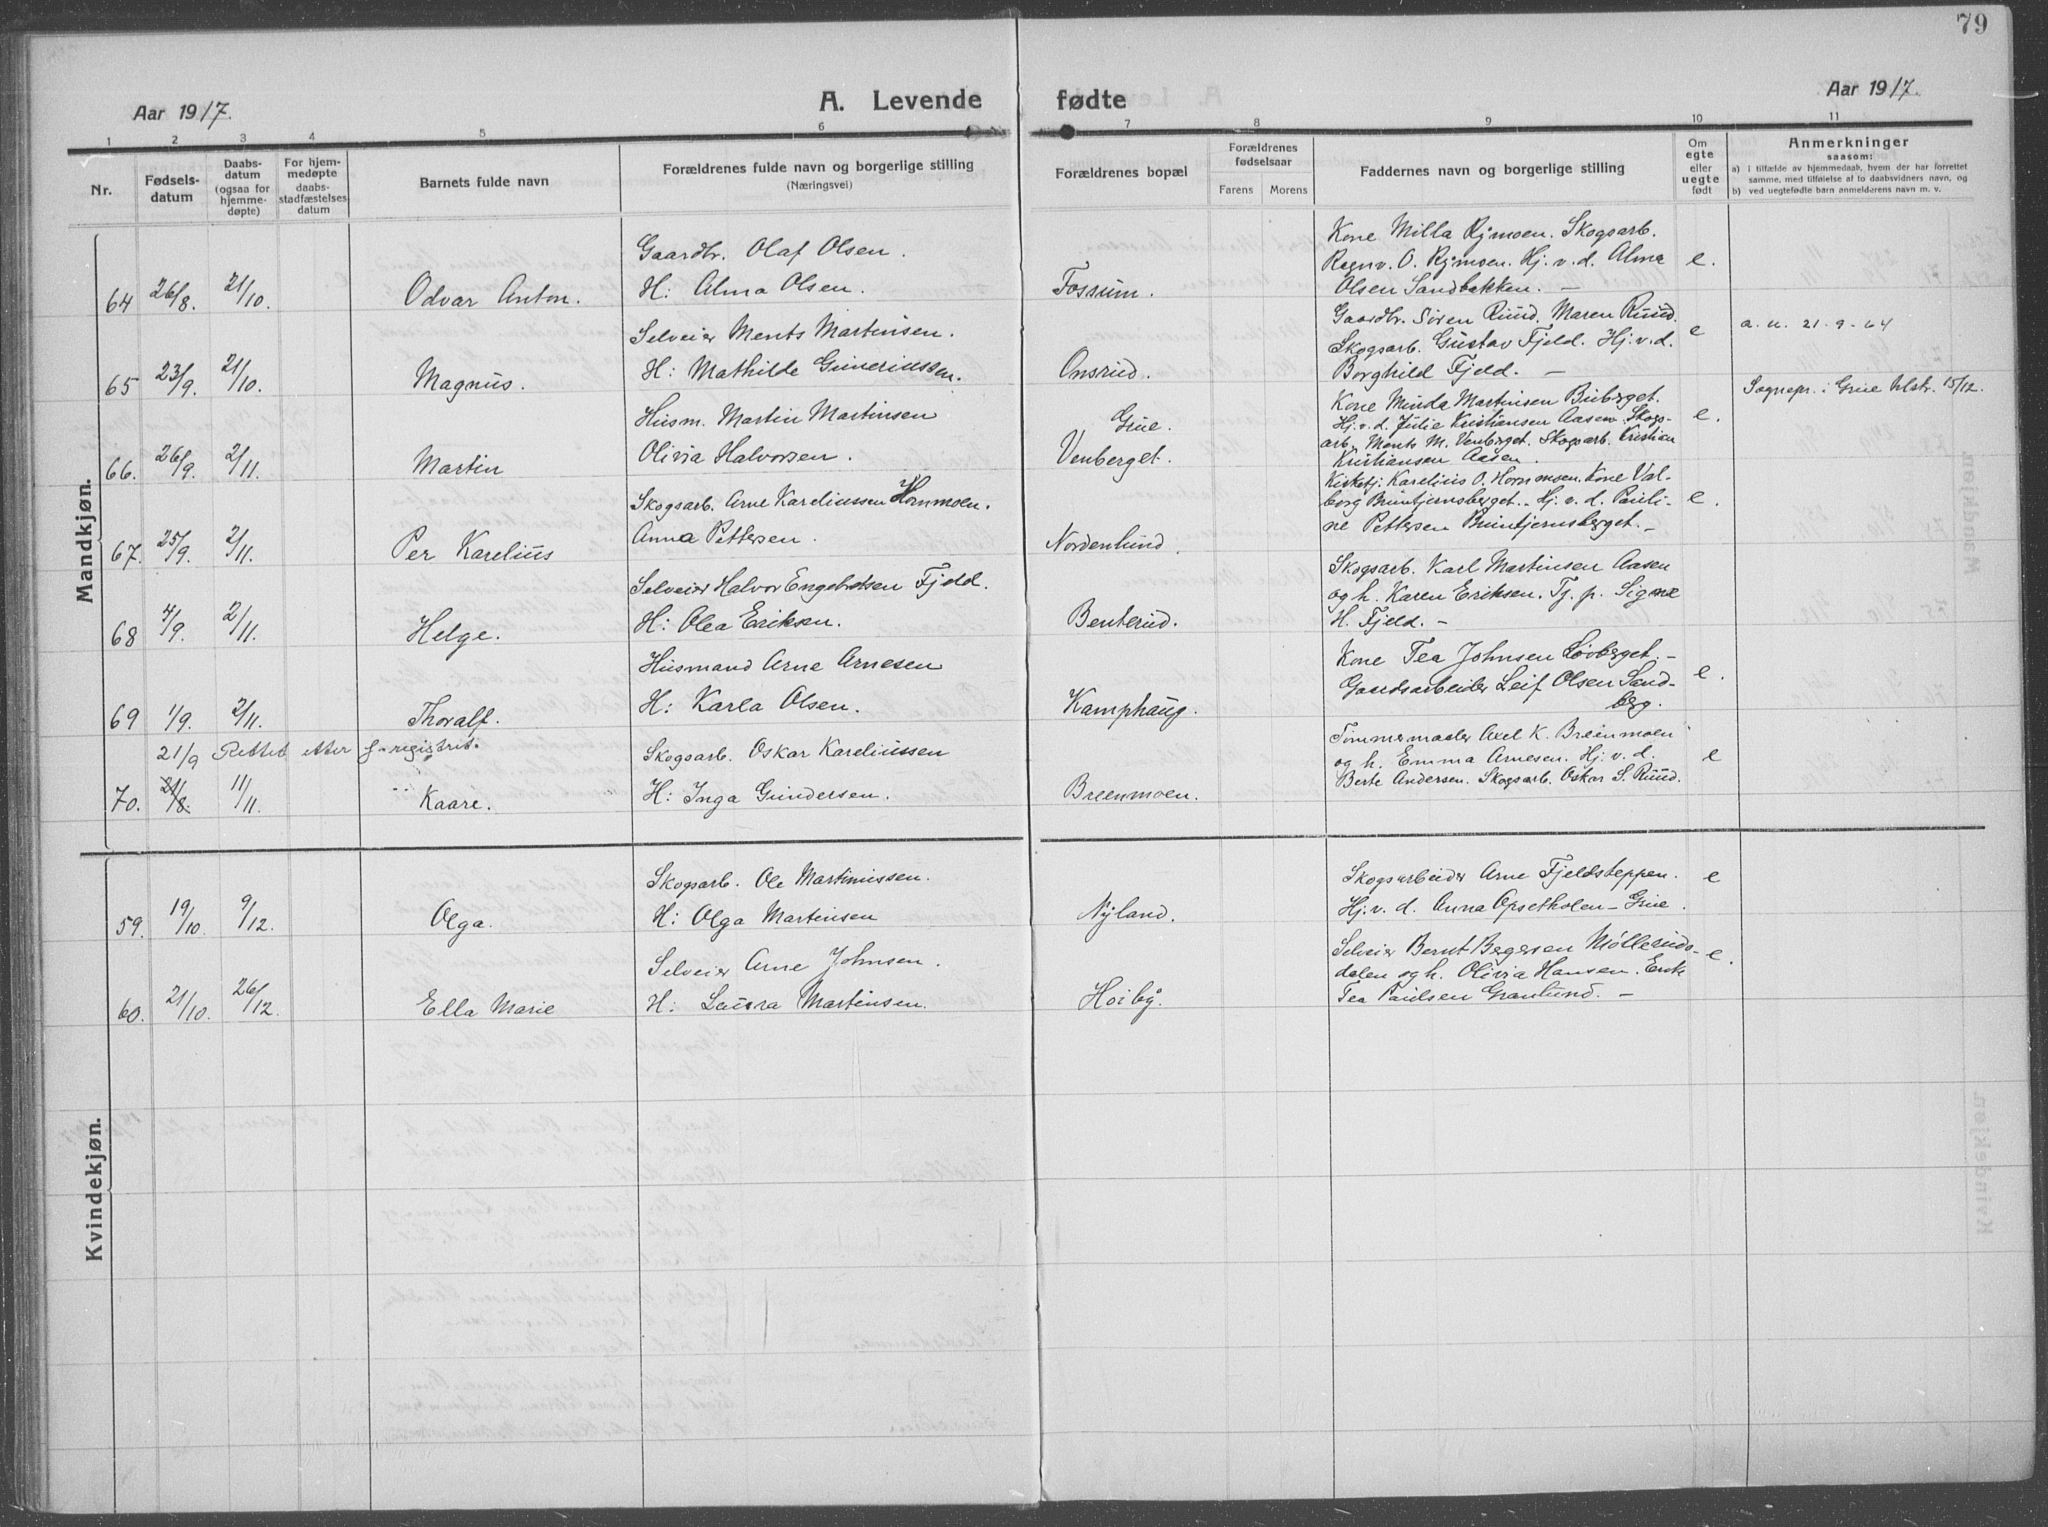 79
Aar 1917.
A. Levende fødte
Aar 1917.
1 2 3 4 5 6 7 8 9 10 11
Nr.
Fødsels-
datum
Daabs-
datum
(ogsaa for
hjemme-
døpte)
For hjem-
medøpte
daabs-
stadfæstelses
datum
Barnets fulde navn
Forældrenes fulde navn og borgerlige stilling
(Næringsvei)
Forældrenes bopæl
Forældrenes
fødselsaar
Farens
Morens
Faddernes navn og borgerlige stilling
Om
egte
eller
uegte
født
Anmerkninger
saasom:
a) i tilfælde av hjemmedaab, hvem der har forrettet
samme, med tilføielse af to daabsvidners navn, og
b) ved uegtefødte barn anmelderens navn m. v.
Mandkjøn.
Gaardbr. Olaf Olsen.
64 26/8. 21/10. Odvar Anton. H: Alma Olsen. Fossum.
Kone Milla Rymoen. Skogsarb.
Ragnv. O. Rymoen. Hj. v. d. Alma e.
Olsen Sandbakken. –
Selveier Ments Martinsen.
65 23/9. 21/10. Magnus. H: Mathilde Guneriussen. Onsrud.
Gaardbr. Søren Ruud. Maren Ruud. e a. u. 21.9-64
Skogsarb. Gustav Fjeld. Hj. v. d.
Borghild Fjeld. –
Husm. Martin Martinsen Grue.
66. 26/9. 2/11. Martin Olivia Halvorsen. Venberget.
Kone Minda Martinsen Buberget. Sognepr. i Grue tilstr. 15/12.
Hj. v. d. Julie Kristiansen Aasen. Skogs- e.
arb. Ments M. Venberget. Skogsarb. Kristian
Kristiansen Aasen.
Skogsarb. Arne Kareliussen Hornmoen.
67. 25/9. 2/11. Per Karelius Anna Pettersen. Nordenlund.
Kirketj. Karelius O. Hornmoen. Kone Val-
borg Buntjernsberget. Hj. v. d. Pauli- e.
ne Pettersen Buntjernsberget. –
Selveier Halvor Engebretsen Fjeld.
68 4/9. 2/11. Helge. H: Olea Eriksen. Benterud.
Skogsarb. Karl Martinsen Aasen
og h. Karen Eriksen. Tj. p. Signe
H. Fjeld. –
Husmand Arne Arnesen
69 1/9. 2/11. Thoralf. H: Karla Olsen. Kamphaug.
Kone Tea Johnsen Løvberget. –
Gaardsarbeider Leif Olsen Sand- e.
berg.
21/9 Rettet etter f-registret. Skogsarb. Oskar Kareliussen
70. 21/8. 11/11. Kaare. H: Inga Gundersen. Breenmoen.
Tømmermaaler Axel K. Breenmoen
og h. Emma Arnesen. Hj. v. d. e
Berte Andersen. Skogsarb. Oskar S. Ruud.
Kvindekjøn.
Skogsarb. Ole Martinussen.
59. 19/10. 9/12. Olga. H: Olga Martinsen Nyland.
Skogsarbeider Arne Fjeldsteppen. e
Hj. v. d. Anna Opsetholen – Grue.
Selveier Arne Johnsen.
60. 21/10. 26/12. Ella Marie H: Laura Martinsen. Høiby.
Selveier Bernt Bergersen Mølleruds- e.
dalen og h. Olivia Hansen. Enke
Tea Paulsen Granlund. –